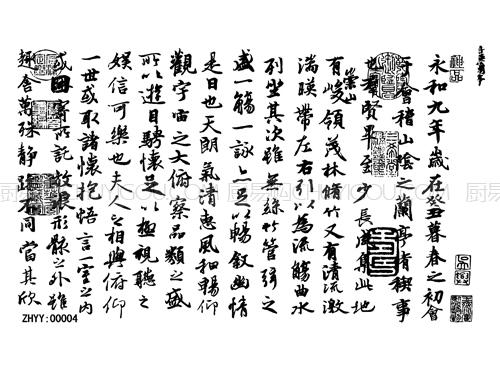 永和九年歲在癸丑暮春之初會
于會稽山陰之蘭亭脩稧事
也群賢畢至少長咸集此地
有崇山峻領茂林脩竹又有清流激
湍暎帶左右引以為流觴曲水
列坐其次雖無絲竹管弦之
盛一觴一詠亦足以暢敘幽情
是日也天朗氣清惠風和暢仰
觀宇宙之大俯察品類之盛
所以遊目騁懷足以極視聽之
娛信可樂也夫人之相與俯仰
一世或取諸懷抱悟言一室之內
或因寄所託放浪形骸之外雖
趣舍萬殊靜躁不同當其欣
ZHYY:00004